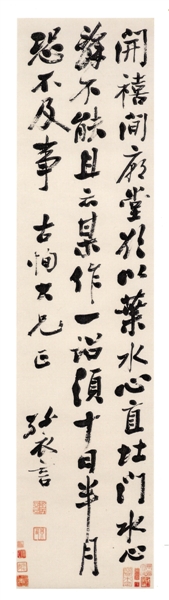 開禧間廟堂欲以葉水心直北門水心
辭不能且云某作一詔須十日半月
恐不及事
古恂大兄正
孫衣言